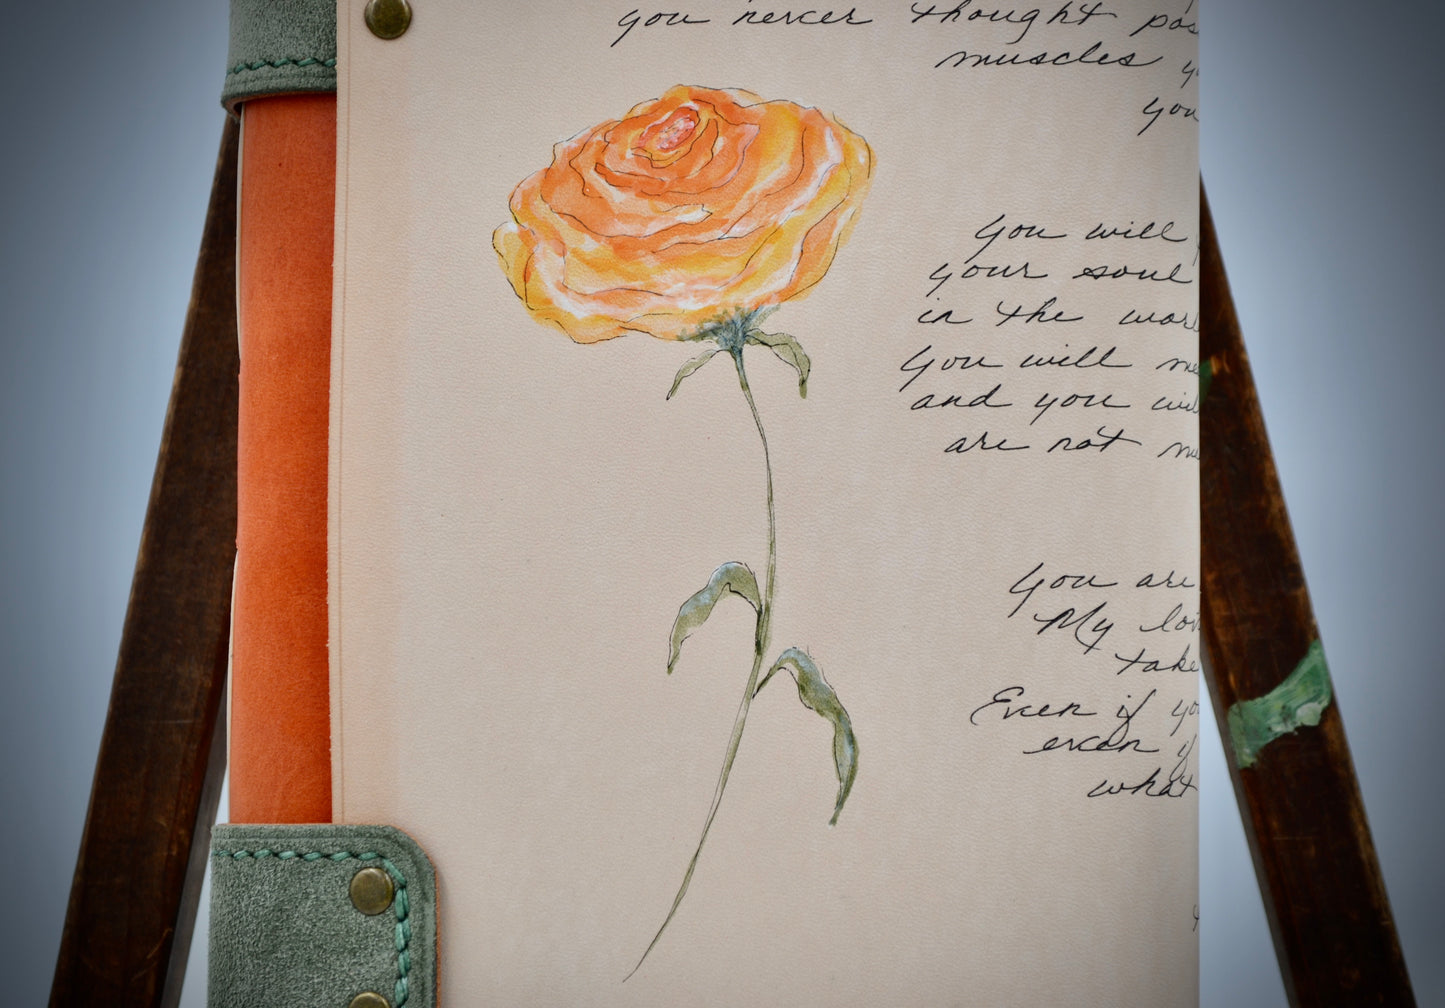 you never thought pos
muscles y
you
You will
your soul
in the wor
You will me
and you wil
are not me
You are
My lov
take
Even if yo
even if
what